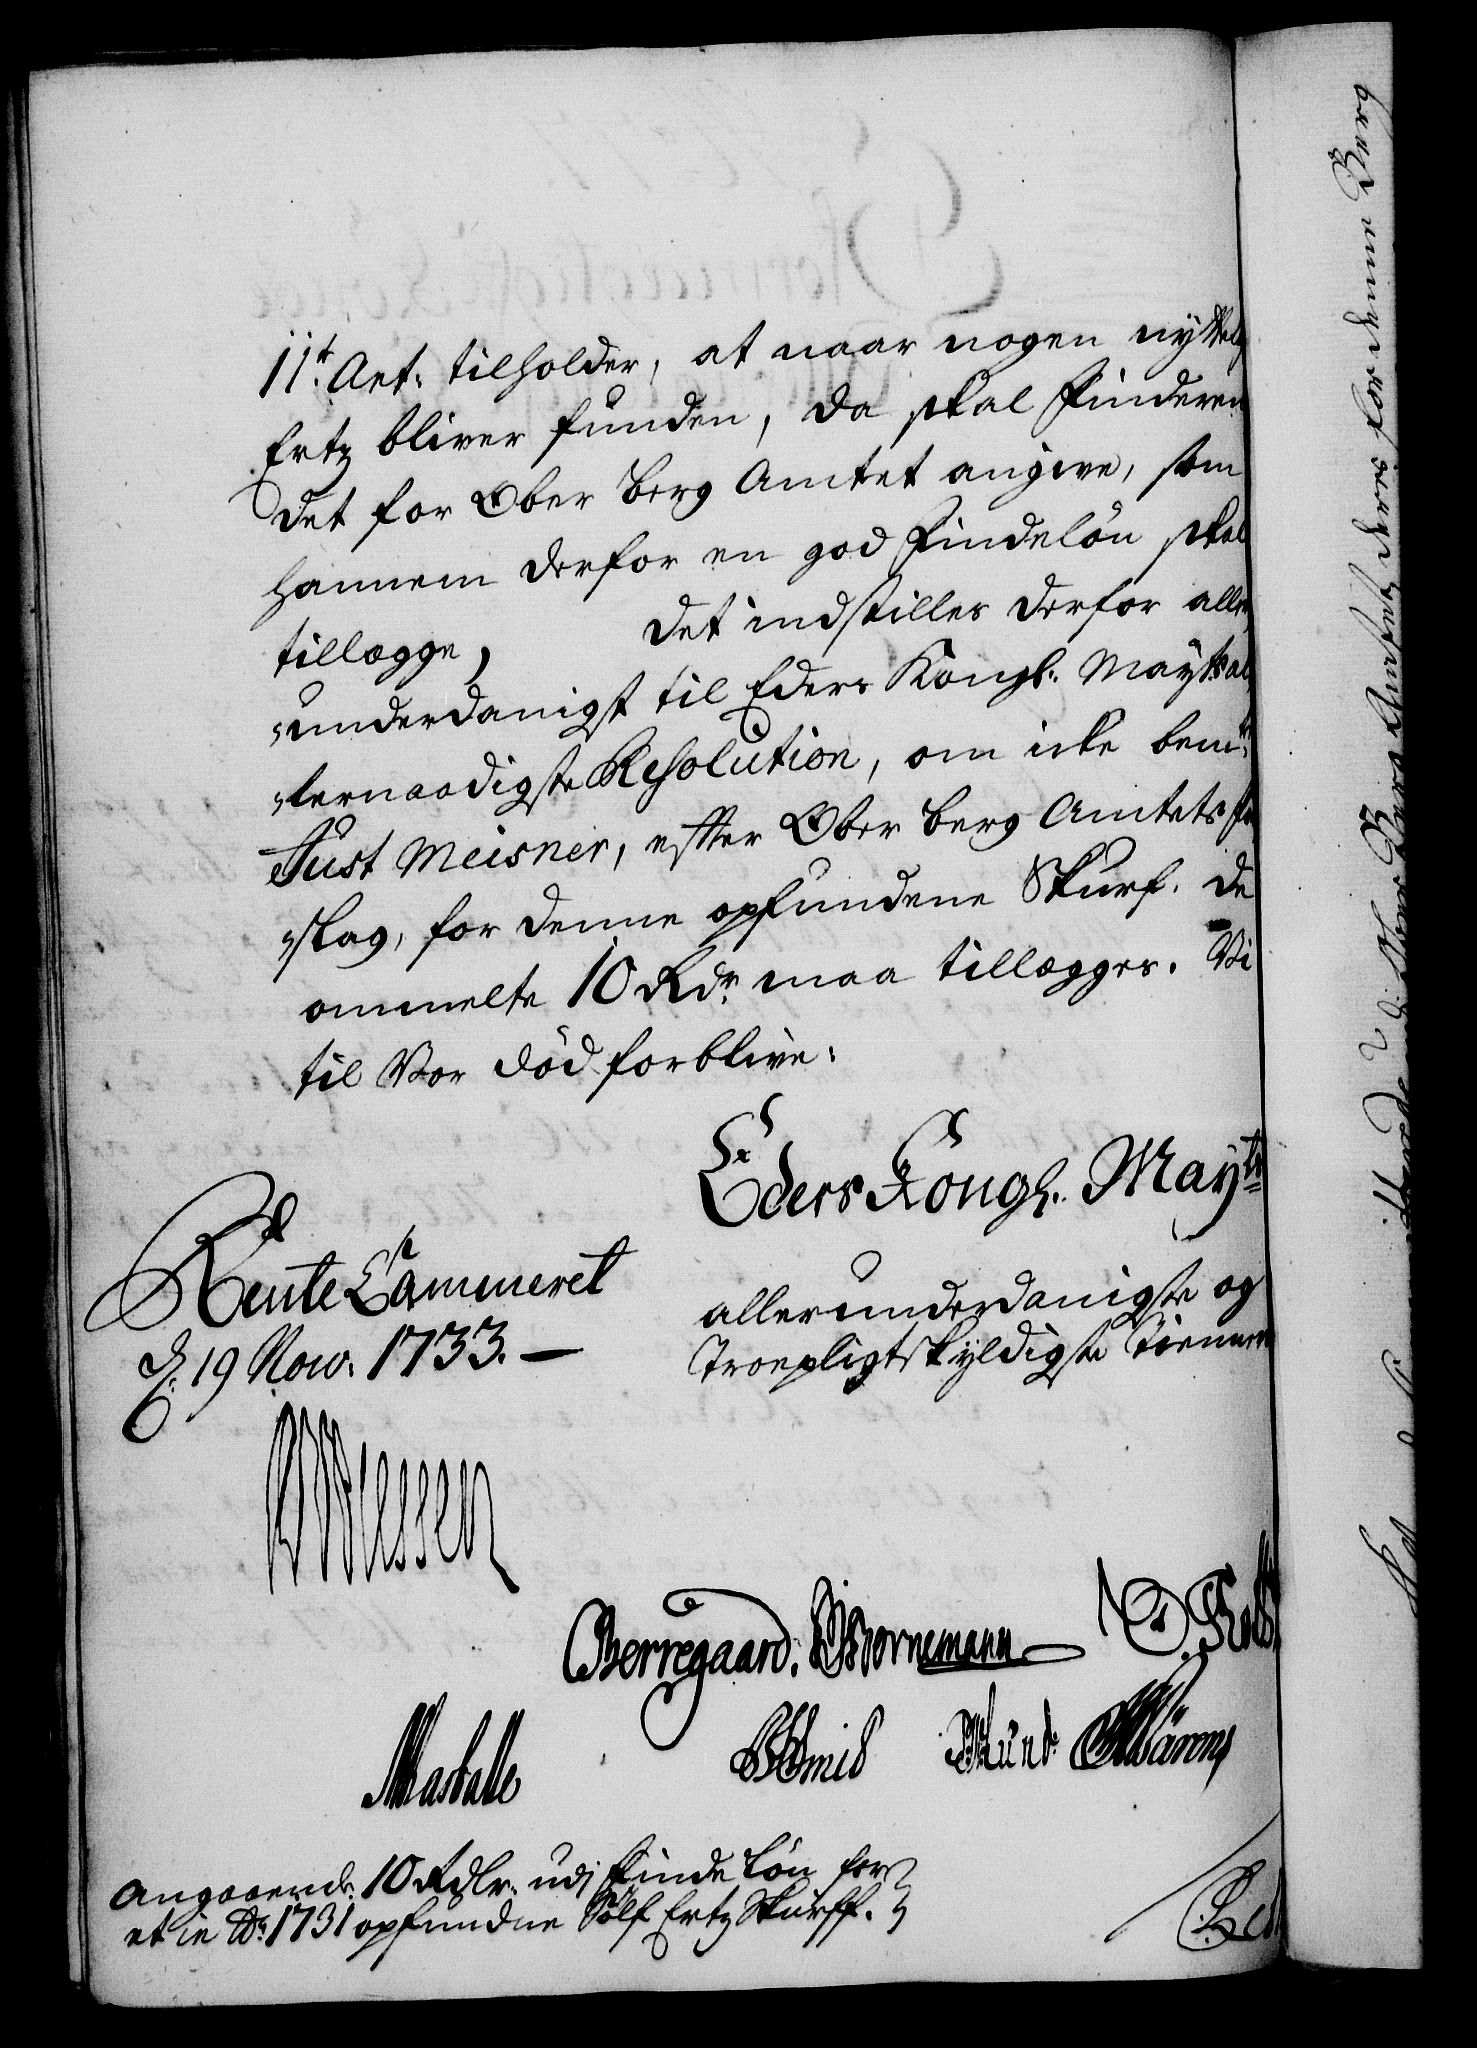 11t. Art: tilholder, at naar nogen nyttelig
Ertz bliver funden, da skal Finderen
det for Ober Berg Amtet angive, som
hannem derfor en god Findelön skal
tillægge, Det indstilles derfor aller,
,underdanigst til Eders Kongl. Mayts al,
,lernaadigste Resolution, om icke bemte
Just Meisner, efter Ober Berg Amtets for
,slag, for denne opfundene Skurf. de
ommelte 10 Rdr. maa tillægges. Vi
til Vor död forblive:
Eders Kongl. Mayts
Rente Cammeret
d. 19 Nov: 1733. —
allerunderdanigste og
Troepligtskyldigste Tienere
Berregaard. Bornemann
Smid Münt.
Angaaende 10 Rdlr. udj Findelön for
et in Ao. 1731 opfundne Sölf Ertz Skurff.
for denne Berg